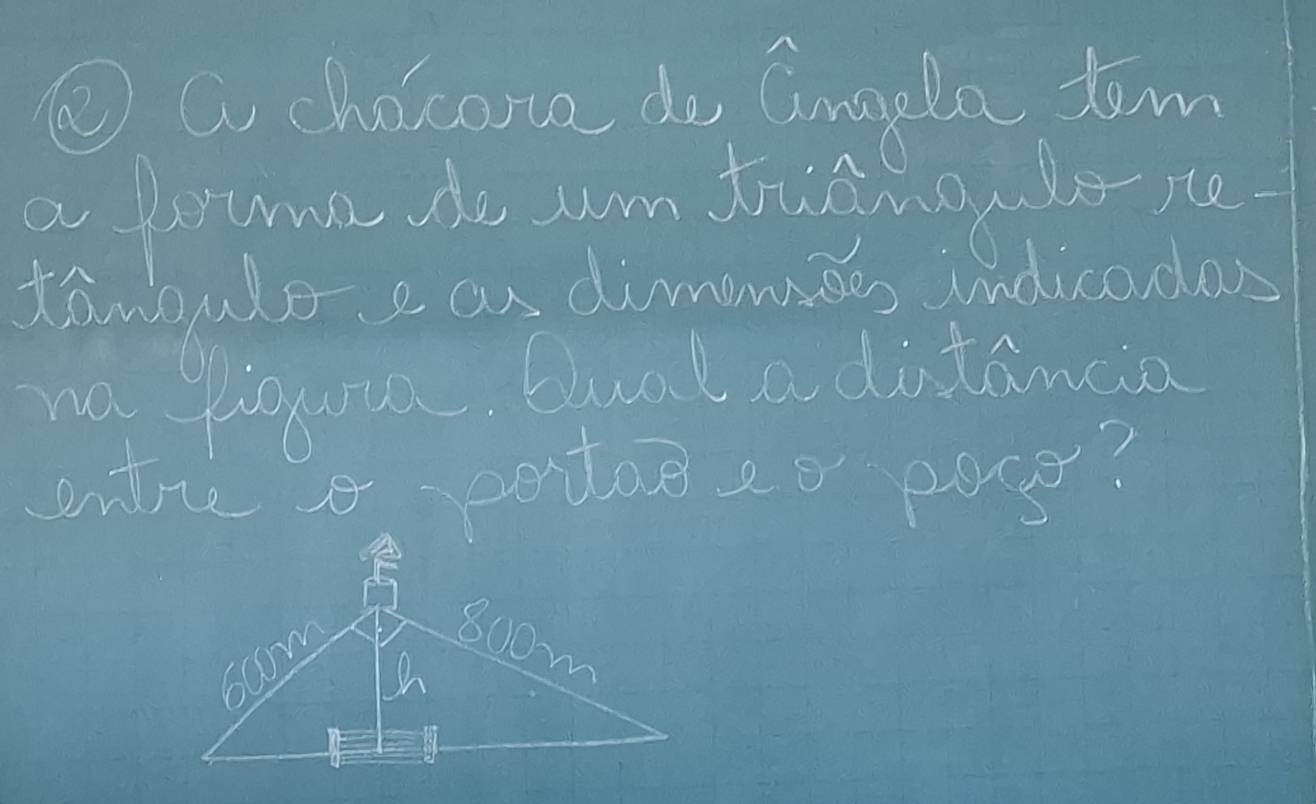 ② A chácara de Ângela tem
a forma de um triângulo re-
tângulo e as dimensões indicadas
na figura. Qual a distância
entre o portão e o poço?
600m 800m
h